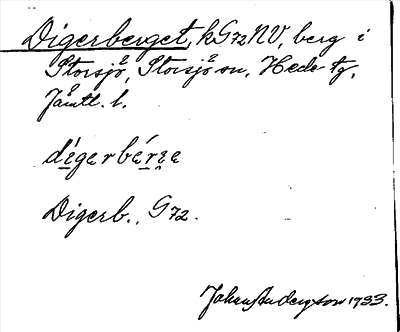 Digerberget, kG72NV, berg i
Storsjö, Storsjö sn, Hede tg,
Jämtl. l.
Digerb., G72.
Johan Anderzon 1933.